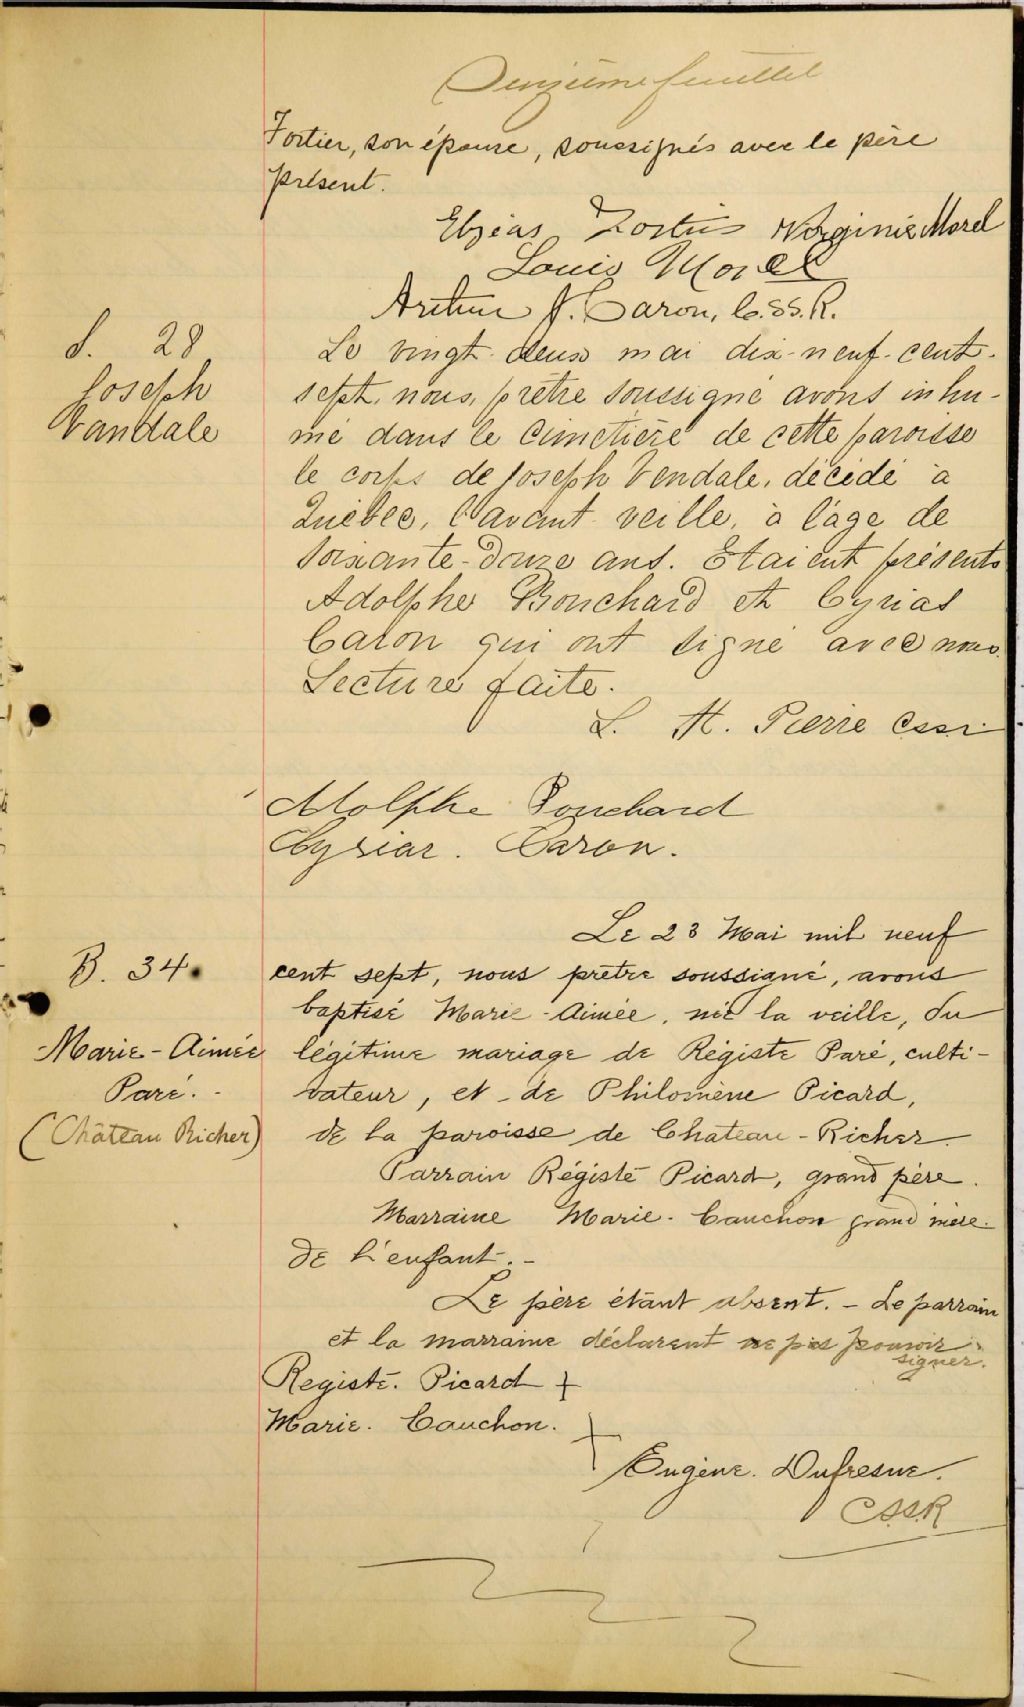 Onzième feuillet
Fortier, son épouse, soussignés avec le père
présent.
Elzéas Fortier Virginie Morel
Louis Morel
Arthur J. Caron, C.SS.R.
S. 28
Joseph
Vandale
Le vingt-deux mai dix-neuf-cent-
sept, nous, prêtre soussigné avons inhu-
mé dans le cimetière de cette paroisse
le corps de Joseph Vendale, décédé à
Québec, l'avant-veille, à l'âge de
soixante-douze ans. Etaient présents
Adolphe Bouchard et Cyrias
Caron qui ont signé avec nous.
Lecture faite.
L. H. Pierre cssr
Adolphe Bouchard
Cyrias. Caron.
B. 34.
Marie-Aimée
Paré.
(Château Richer)
Le 23 Mai mil neuf
cent sept, nous prêtre soussigné, avons
baptisé Marie-Aimée, née la veille, du
légitime mariage de Régiste Paré, culti-
vateur, et de Philomène Picard,
de la paroisse de Chateau-Richer.
Parrain Régisté Picard, grand père.
Marraine Marie. Cauchon grand'mère.
de l'enfant.-
Le père étant absent. - Le parrain
et la marraine déclarent ne pas pouvoir
signer.
Registé. Picard +
Marie. Cauchon. +
Eugène. Dufresne.
CSSR